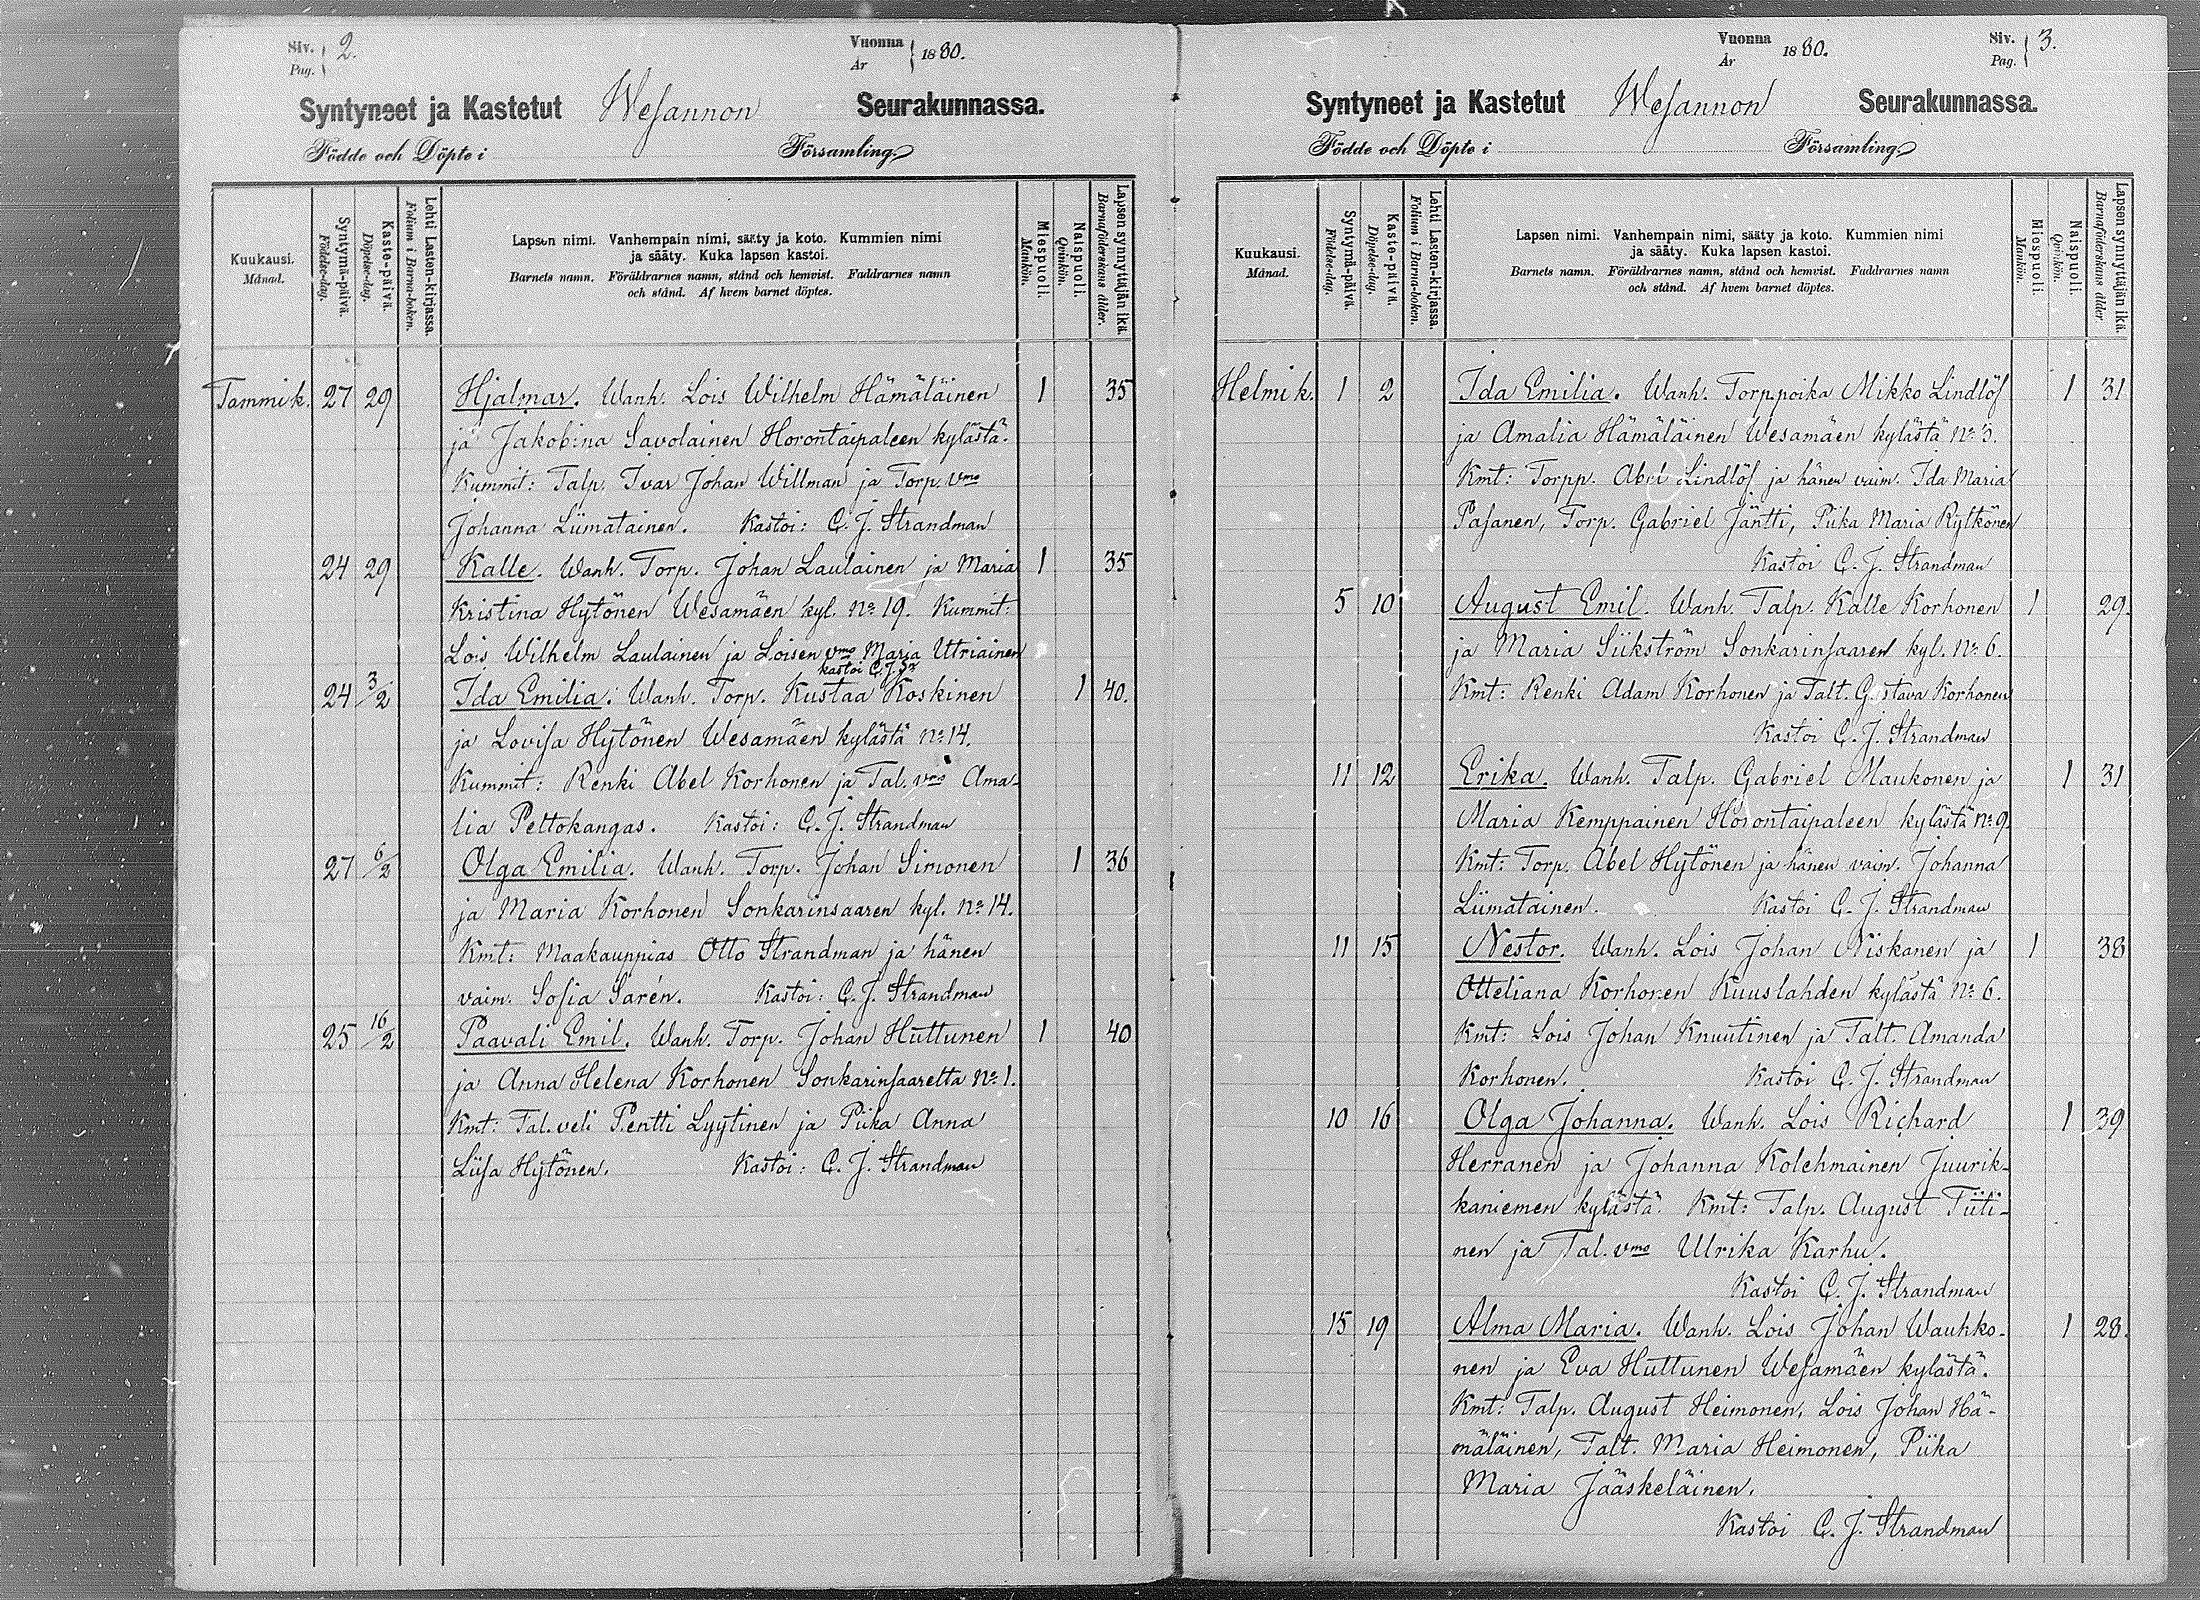 Siv. Pag. 2. Vuonna År 1880.
Syntyneet ja Kastetut Wesannon Seurakunnassa.
Födde och Döpte i Församling.
Kuukausi. Månad.
Syntymä-päivä. Födelse-dag.
Kaste-päivä. Döpelse-dag.
Lehti Lasten-kirjassa. Folium i Barna-boken.
Lapsen nimi. Vanhempain nimi, sääty ja koto. Kummien nimi
ja sääty. Kuka lapsen kastoi.
Barnets namn. Föräldrarnes namn, stånd och hemvist. Faddrarnes namn
och stånd. Af hvem barnet döptes.
Miespuoli. Mankön.
Naispuoli. Qvinkön.
Lapsen synnyttäjän ikä. Barnaföderskans ålder.
Tammik. 27 29 Hjalmar. Wanh. Lois Wilhelm Hämäläinen 1 35
ja Jakobina Savolainen Horontaipaleen kylästä.
Kummit: Talp. Ivar Johan Willman ja Torp. vmo
Johanna Liimatainen. Kastoi: C. J. Strandman
24 29 Kalle. Wanh. Torp. Johan Laulainen ja Maria 1 35
Kristina Hytönen Wesamäen kyl. No 19. Kummit:
Lois Wilhelm Laulainen ja Loisen vmo Maria Utriainen
kastoi C. J. Sn
24 3/2 Ida Emilia. Wanh. Torp. Kustaa Koskinen 1 40.
ja Lovisa Hytönen Wesamäen kylästä No 14.
Kummit: Renki Abel Korhonen ja Tal. vmo Ama-
lia Peltokangas. Kastoi: C. J. Strandman
27 6/2 Olga Emilia. Wanh. Torp. Johan Simonen 1 36
ja Maria Korhonen Sonkarinsaaren kyl. No 14.
Kmt: Maakauppias Otto Strandman ja hänen
vaim. Sofia Sarén. Kastoi: C. J. Strandman
25 16/2 Paavali Emil. Wanh. Torp. Johan Huttunen 1 40
ja Anna Helena Korhonen Sonkarinsaaretta No 1.
Kmt: Tal. veli Pentti Lyytinen ja Piika Anna
Liisa Hytönen. Kastoi: C. J. Strandman
Vuonna År 1880. Siv. Pag. 3.
Syntyneet ja Kastetut Wesannon Seurakunnassa.
Födde och Döpte i Församling.
Kuukausi. Månad.
Syntymä-päivä. Födelse-dag.
Kasto-päivä. Döpelse-dag.
Lehti Lasten-kirjassa. Folium i Barna-boken.
Lapsen nimi. Vanhempain nimi, sääty ja koto. Kummien nimi
ja sääty. Kuka lapsen kastoi.
Barnets namn. Föräldrarnes namn, stånd och hemvist. Faddrarnes namn
och stånd. Af hvem barnet döptes.
Miespuoli. Mankön.
Naispuoli. Qvinkön.
Lapsen synnyttäjän ikä. Barnaföderskans ålder
Helmik. 1 2 Ida Emilia. Wanh. Torppoika Mikko Lindlöf 1 31
ja Amalia Hämäläinen Wesamäen kylästä No 3.
Kmt: Torpp. Abel Lindlöf ja hänen vaim. Ida Maria
Pasanen, Torp. Gabriel Jäntti, Piika Maria Rytkönen
Kastoi C. J. Strandman
5 10 August Emil. Wanh. Talp. Kalle Korhonen 1 29.
ja Maria Siikström Sonkarinsaaren kyl. No 6.
Kmt: Renki Adam Korhonen ja Talt. Gustava Korhonen
Kastoi C. J. Strandman
11 12 Erika. Wanh. Talp. Gabriel Maukonen ja 1 31
Maria Kemppainen Horontaipaleen kylästä No 9.
Kmt: Torp. Abel Hytönen ja hänen vaim. Johanna
Liimatainen. Kastoi C. J. Strandman
11 15 Nestor. Wanh. Lois Johan Niskanen ja 1 38
Otteliana Korhonen Kuuslahden kylästä No 6.
Kmt: Lois Johan Knuutinen ja Talt. Amanda
Korhonen. Kastoi C. J. Strandman
10 16 Olga Johanna. Wanh. Lois Richard 1 39
Herranen ja Johanna Kolehmainen Juurik-
kaniemen kylästä. Kmt: Talp. August Tiiti-
nen ja Tal. vmo Ulrika Karhu.
Kastoi C. J. Strandman
15 19 Alma Maria. Wanh. Lois Johan Wauhko- 1 28.
nen ja Eva Huttunen Wesamäen kylästä.
Kmt: Talp. August Heimonen, Lois Johan Hä-
mäläinen, Talt. Maria Heimonen, Piika
Maria Jääskeläinen.
Kastoi C. J. Strandman